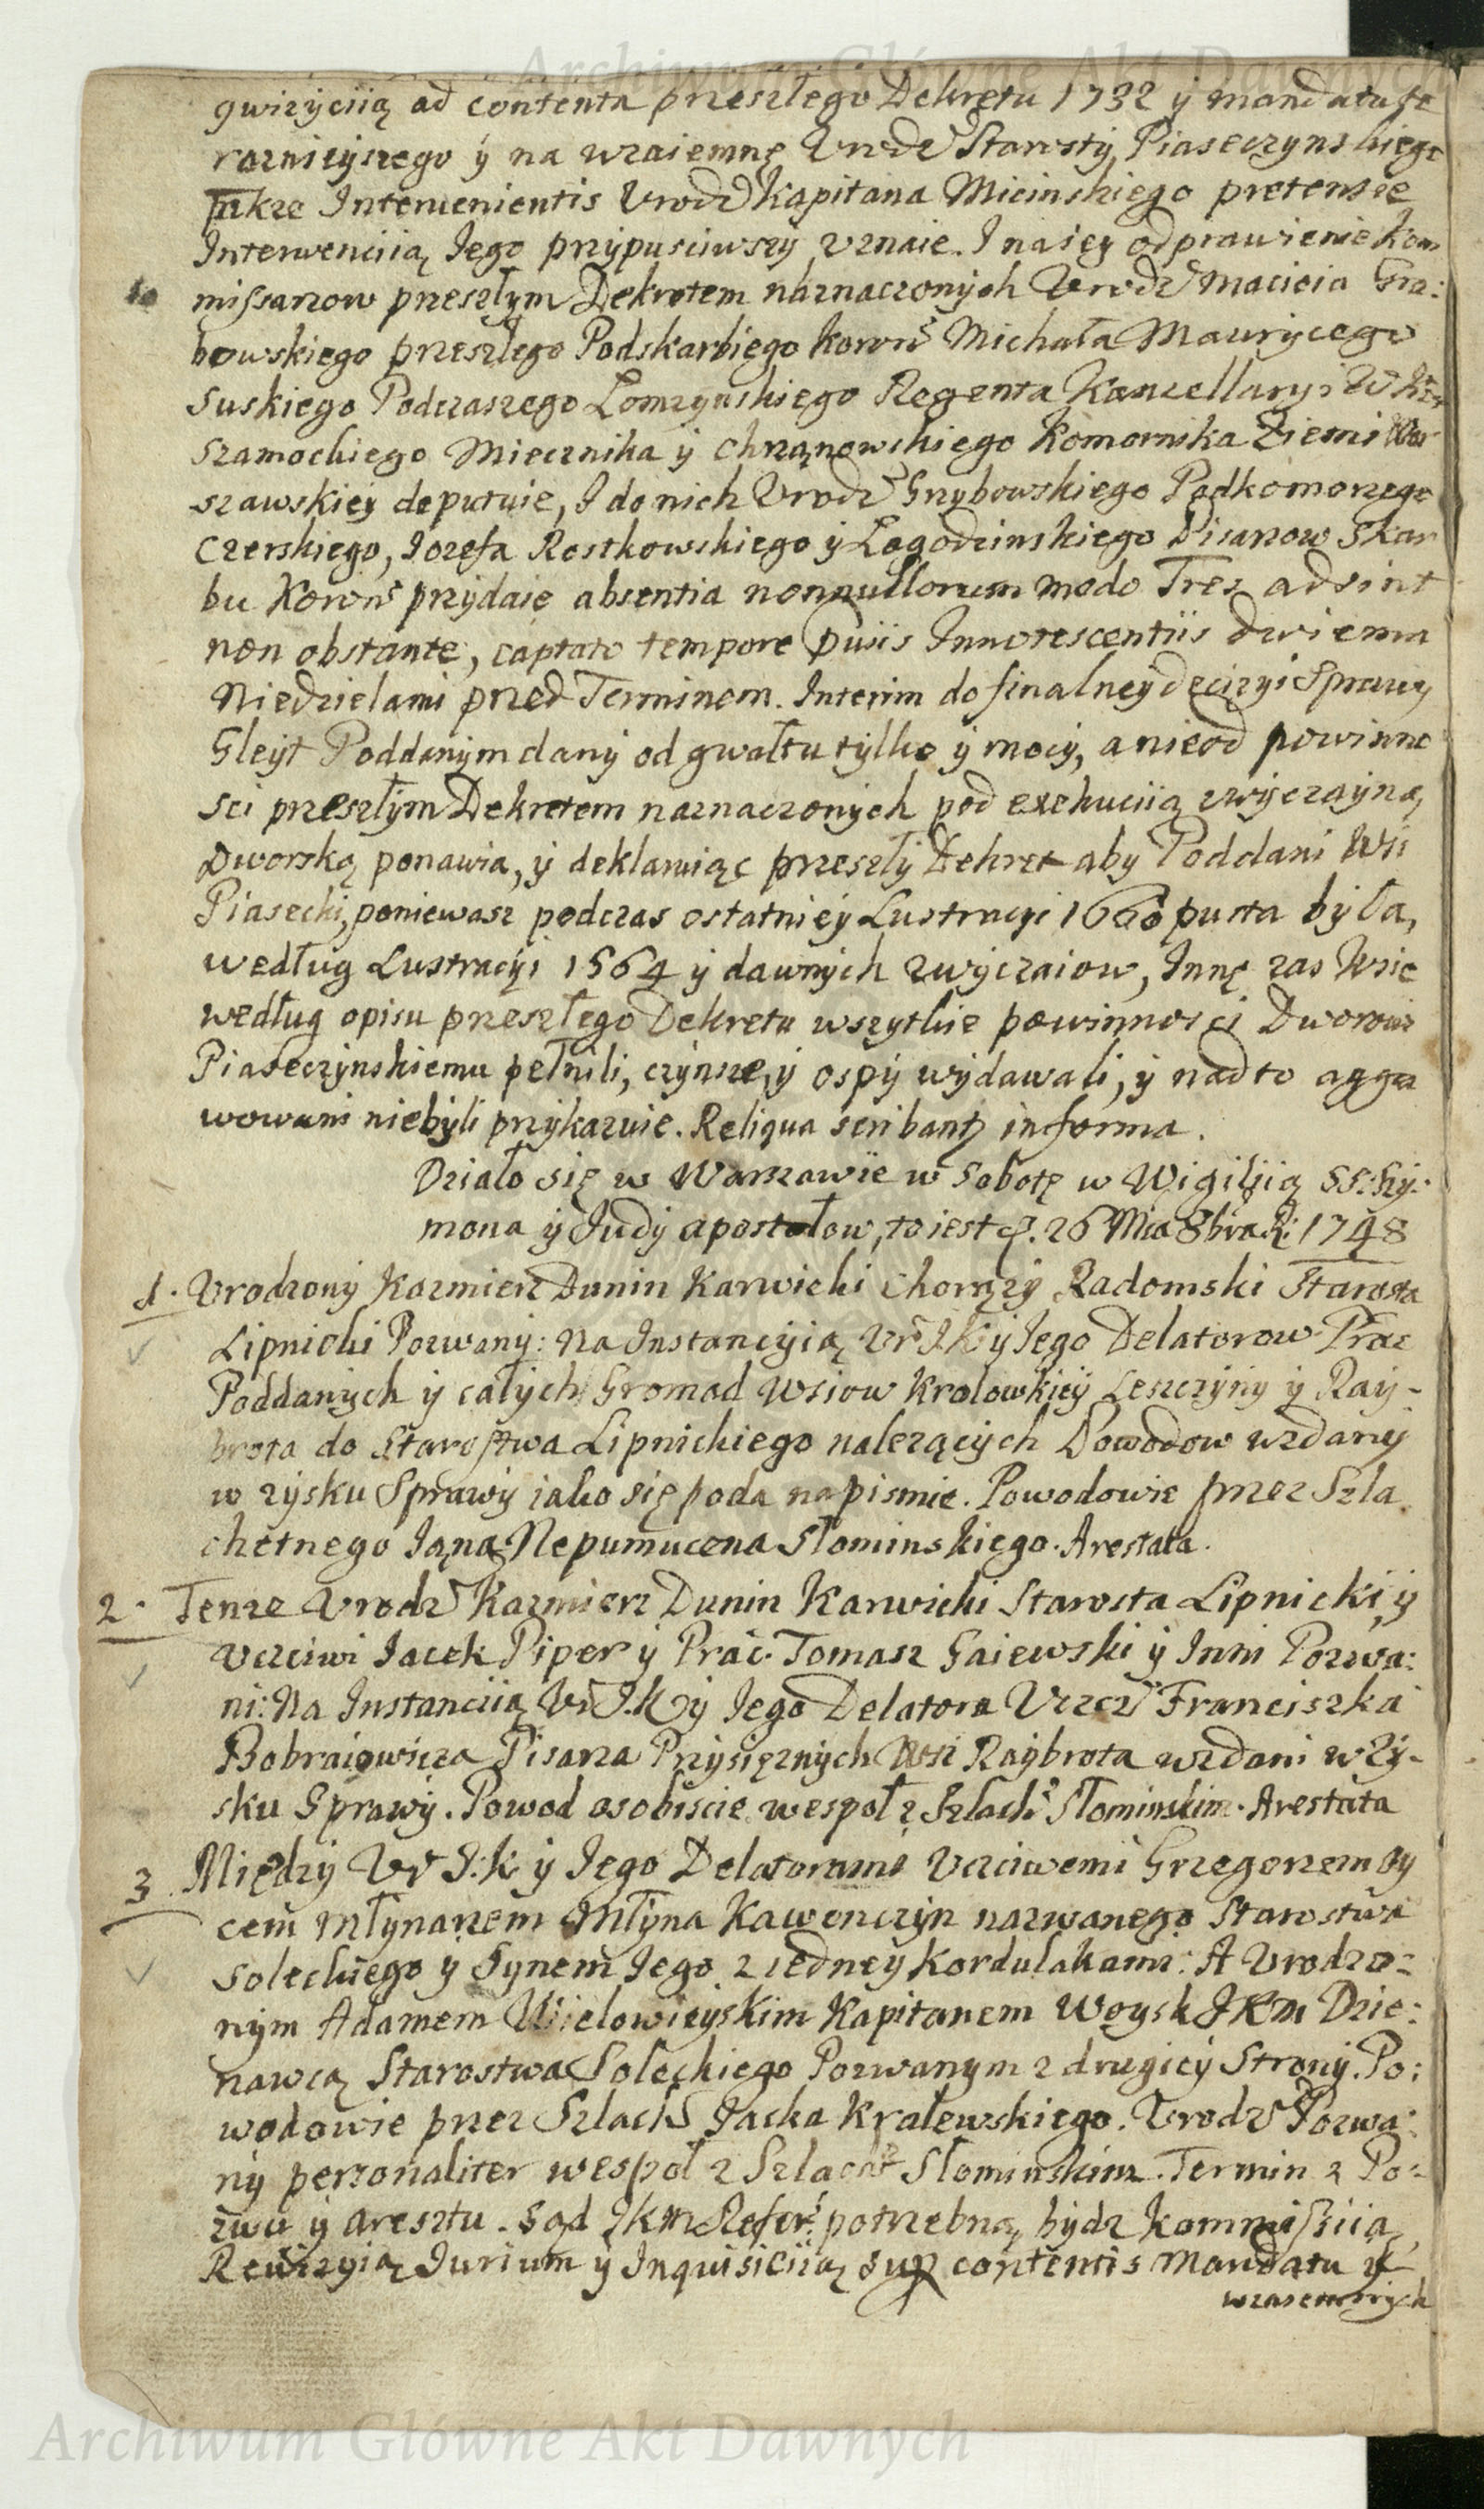 Archiwum Główne Akt Dawnych
gwizyciią ad contenta przeszłego Dekretu 1732 y mandatu te
raznieyszego y na wzaiemnę Urodz Starosty Piaseczynskiego
takze Intervenientis Urodz Kapitana Micinskiego pretensie
Interwenciią Jego przypusciwszy uznaie. I na iey odprawienie Kom
missarzow przeszłym Dekretem náznaczonych Urodz Macieia Gra:
bowskiego przeszłego Podskarbiego Koron Michała Maurycego
Suskiego Podczaszego Lomzynskiego Regenta Kancellaryi W Kor
Szamockiego Miecznika y Chrzanowskiego Komornika Ziemi War
szawskiey deputuie, I do nich Urodz Grzybowskiego Podkomorzego
Czerskiego, Iozefa Rostkowskiego y Łagodzinskiego Pisarzow Skar
bu Koron przydaie absentia nonnullorum modo Tres adsint
non obstante, captato tempore Innotescentiis dwiema
Niedzielami przed Terminem. Interim do finalney decizyi Sprawy
Gleyt Poddanym dany od gwałtu tylko y mocy, a nieod powinno
sci przeszłym Dekretem naznaczonych pod exekuciią zwyczayną
Dworską ponawia, y deklaruiąc przeszły Dekret aby Poddani Wsi
Piasecki, poniewasz podczas ostatniey Lustracyi 1660 pusta była,
według Lustracyi 1564 y dawnych zwyczaiow, Inne zas Wsie
według opisu przeszłego Dekretu wszytkie powinnosci Dworowi
Piaseczynskiemu pełnili, czynsze, y ospy wydawali, y nad to aggra
wowani niebyli przykazuie. Reliqua scribantr in forma.
Działo się w Warszawie w Sobotę w Wigiliią SS: Szy:
mona y Judy apostołow, to iest d. 26 Mca 8bra R: 1748
1. Urodzony Kazmierz Dunin Karwicki Chorązy Radomski Starosta
Lipnicki Pozwany: Na Instancyią Ur I K y Jego Delatorow Prac
Poddanych y całych Gromad Wsiow Krolowkiey Leszczyny y Ray-
brota do Starostwa Lipnickiego nalezących Powodow wzdany
w zysku Sprawy iako się poda na pismie. Powodowie przez Szla
chetnego Jana Nepumucena Słominskiego. Arestata.
2. Tenze Urodz Kazmierz Dunin Karwicki Starosta Lipnicki, y
Uczciwi Jacek Piper y Prac. Tomasz Gaiewski y Inni Pozwa:
ni: Na Instanciią Ur I.K y Jego Delatora Uczcz Franciszka
Bobraiowicza Pisarza Przysięznych Wsi Raybrota wzdani w Zy-
sku Sprawy. Powod osobiscie wespoł z Szlach Słominskim. Arestata
3. Między Ur I:K y Jego Delatorami Uczciwemi Grzegorzem Oy
cem Młynarzem Młyna Kawenczyn nazwanego Starostwa
Soleckiego y Synem Jego z iedney Kordulakami: A Urodzo:
nym Adamem Wielowieyskim Kapitanem Woysk JKM Dzie:
rzawcą Starostwa Soleckiego Pozwanym z drugiey Strony. Po:
wodowie przez Szlach Jacka Kralewskiego. Urodz Pozwa:
ny personaliter wespoł z Szlach Słominskim. Termin z Po:
zwu y aresztu. Sąd JKM Refer potrzebną bydz Kommissiią,
Rewizyią Jurium y Inquisiciią sup contentis Mandatu y
wzaiemnych
Archiwum Główne Akt Dawnych